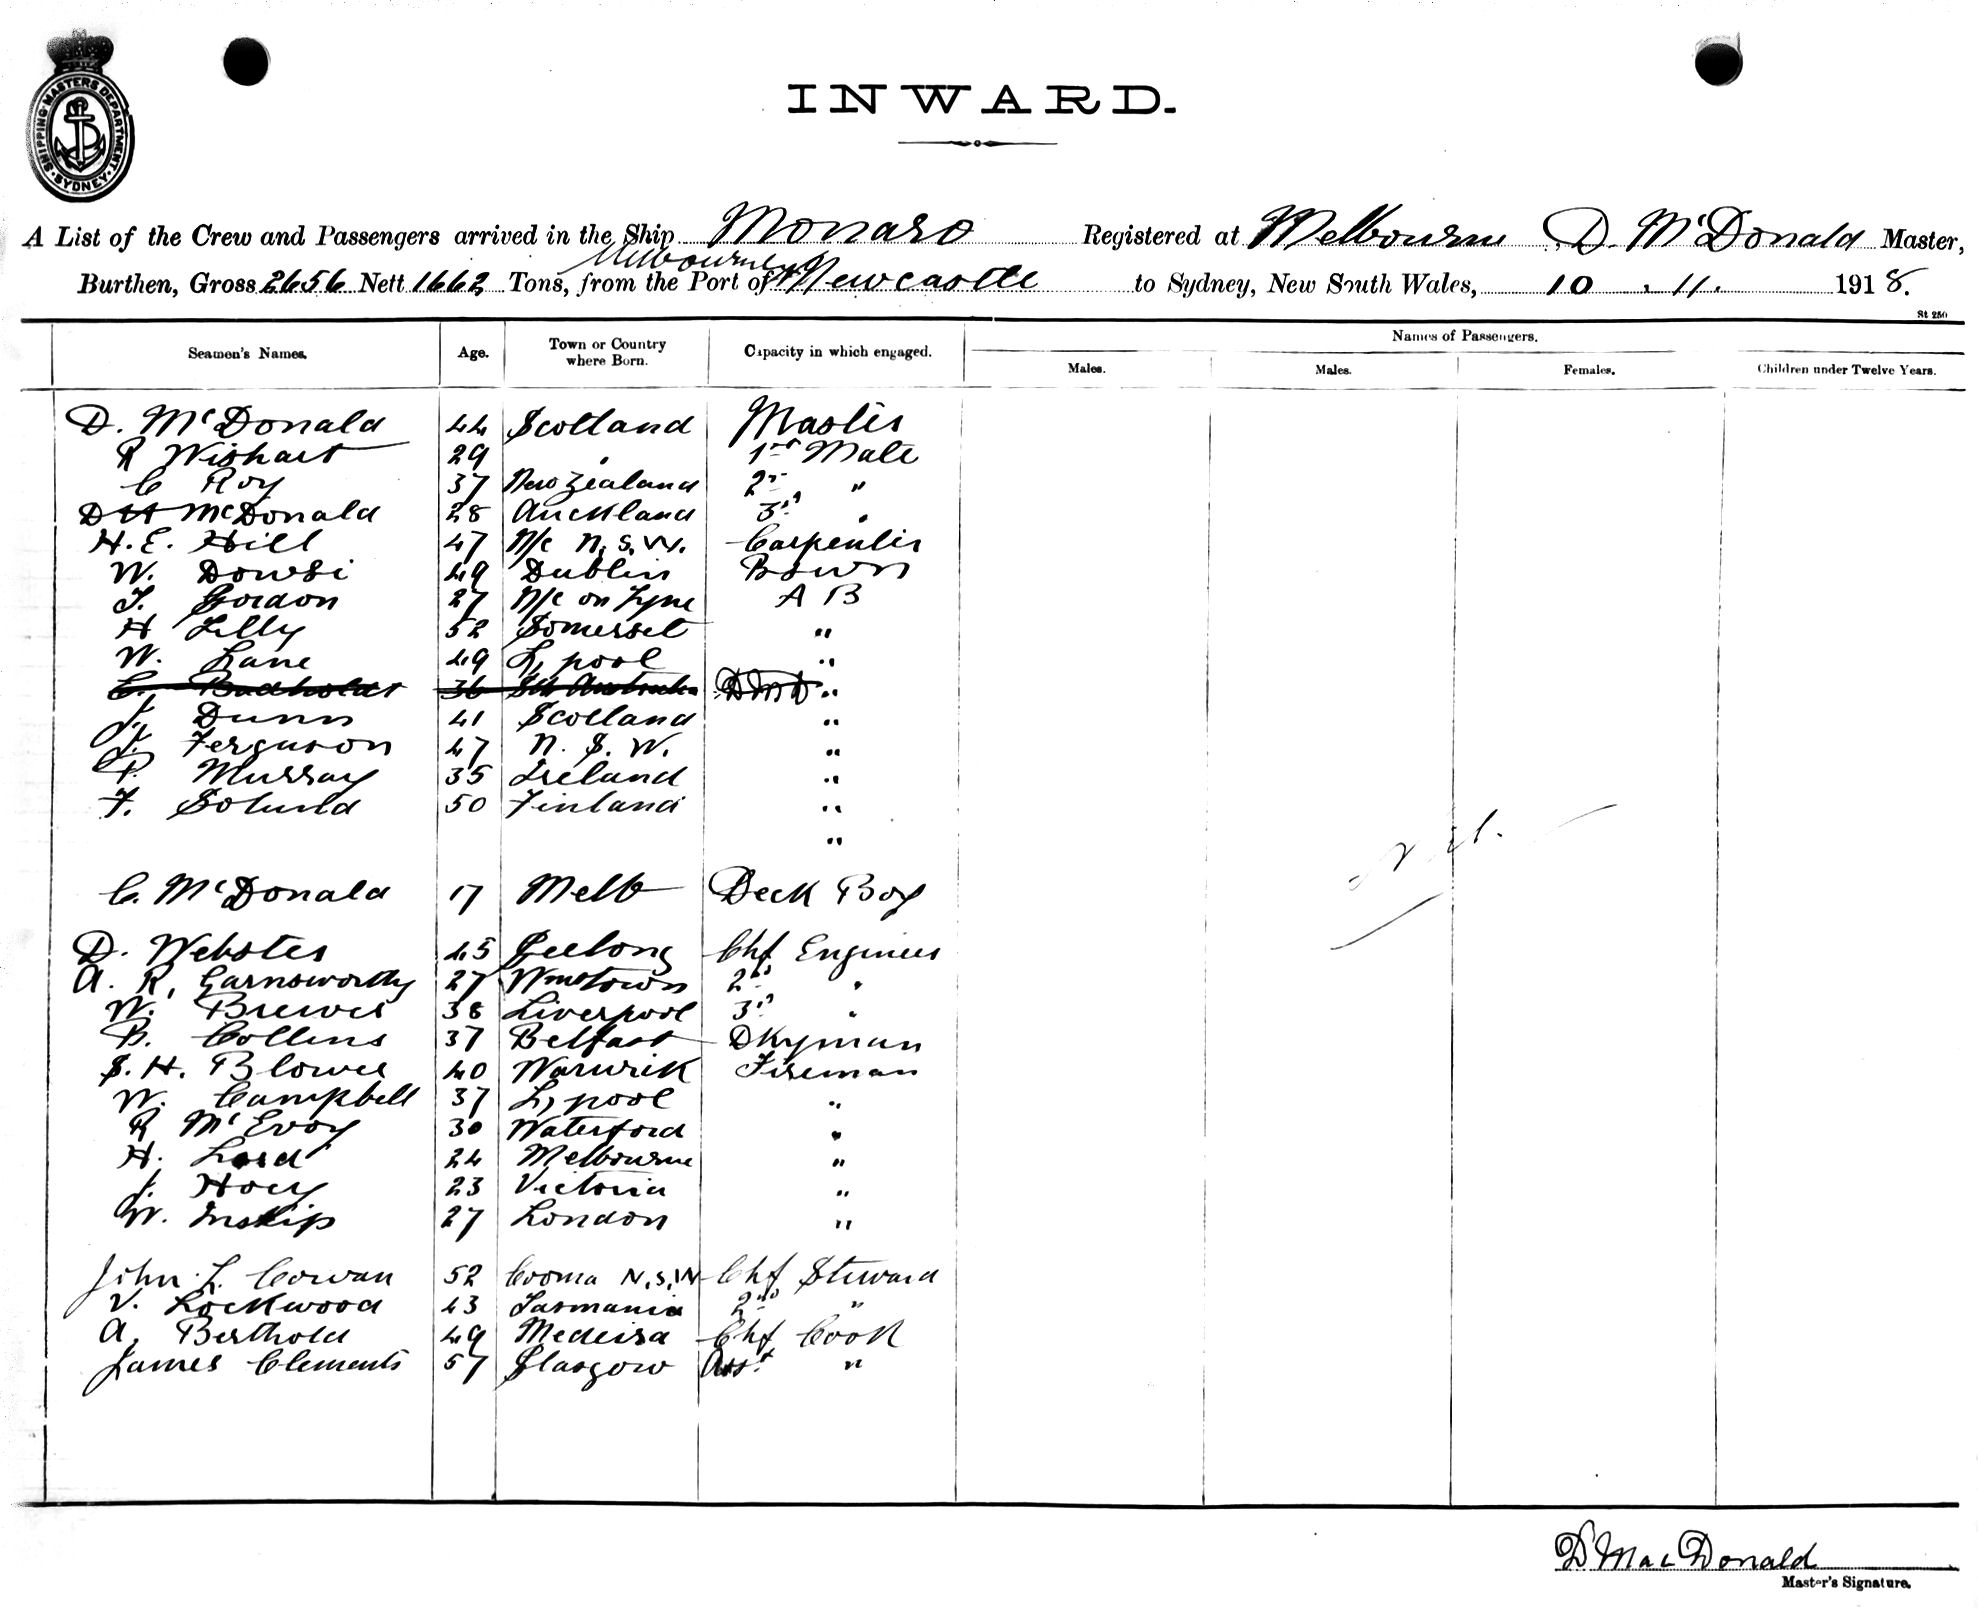 SHIPPING MASTERS DEPARTMENT
SYDNEY
INWARD.
A List of the Crew and Passengers arrived in the Ship Monaro Registered at Melbourne, D. McDonald Master,
Melbourne
Burthen, Gross 2656 Nett 1662 Tons, from the Port of Newcastle to Sydney, New South Wales, 10 . 11. 1918.
St 250
Seamen's Names. Age. Town or Country where Born. Capacity in which engaged. Names of Passengers.
Males. Males. Females. Children under Twelve Years.
D. McDonald 44 Scotland Master
R Wishart 29 " 1st Mate
C Roy 37 New Zealand 2nd "
D H McDonald 28 Auckland 3rd "
H. E. Hill 47 N/c N.S.W. Carpenter
W. Dowsi 49 Dublin Bosun
T. Gordon 27 N/c on Tyne A B
H Lilly 52 Somerset "
W. Lane 49 L,pool "
C. Buchholdt 36 Sth Australia DMD "
J. Dunn 41 Scotland "
J. Ferguson 47 N. S. W. "
P. Murray 35 Ireland "
F. Solund 50 Finland "
"
C. McDonald 17 Melb Deck Boy
Nil.
D. Webster 45 Geelong Chf Engineer
A. R. Garnsworthy 27 Wmstown 2nd "
W. Brewer 38 Liverpool 3rd "
B. Collins 37 Belfast Dkyman
S. H. Blower 40 Warwick Fireman
W. Campbell 37 L,pool "
R McEvoy 30 Waterford "
H. Lord 24 Melbourne "
J. Hoey 23 Victoria "
W. Inskip 27 London "
John L. Cowan 52 Cooma N.S.W Chf Steward
V. Lockwood 43 Tasmania 2nd "
A. Berthold 49 Medeira Chf Cook
James Clements 57 Glasgow Asst "
D MacDonald
Master's Signature.